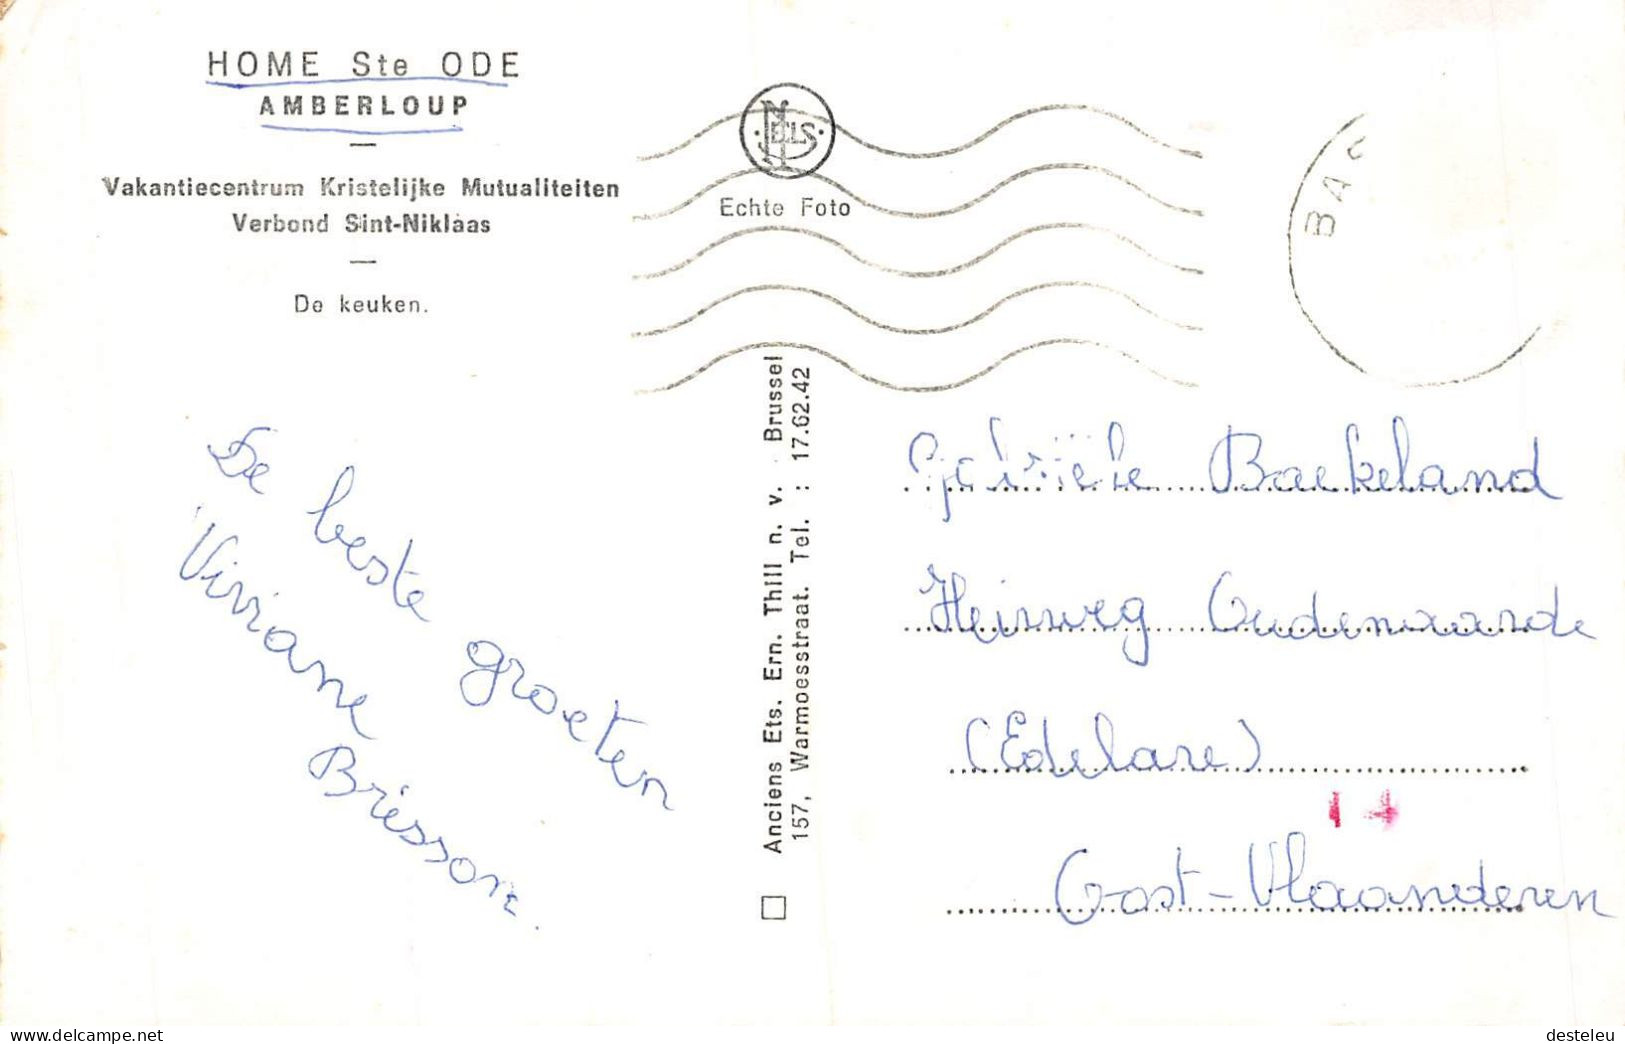 HOME Ste ODE
AMBERLOUP
Vakantiecentrum Kristelijke Mutualiteiten
Verbond Sint-Niklaas
De keuken.
NELS
Echte Foto
BAS
De beste groeten
Viviane
Brisson.
Anciens Ets. Ern. Thill n. v. Brussel
157, Warmoesstraat. Tel. : 17.62.42
Baekeland
Heirweg Oudenaarde
(Edelare)
Oost-Vlaanderen
www.delcampe.net
desteleu